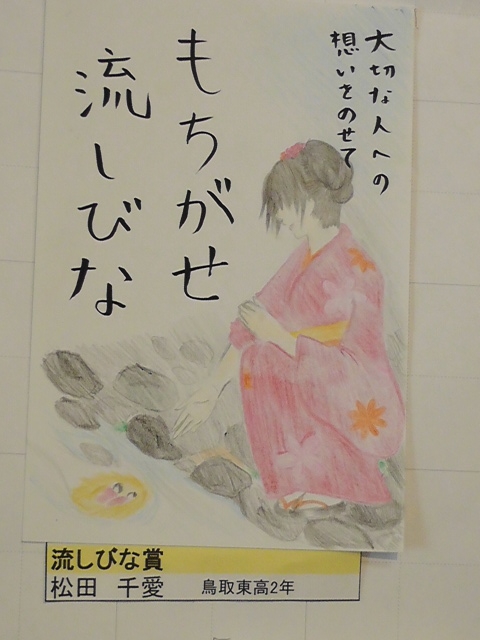 大切な人への
想いをのせて
もちがせ
流しびな
流しびな賞
松田 千愛 鳥取東高2年